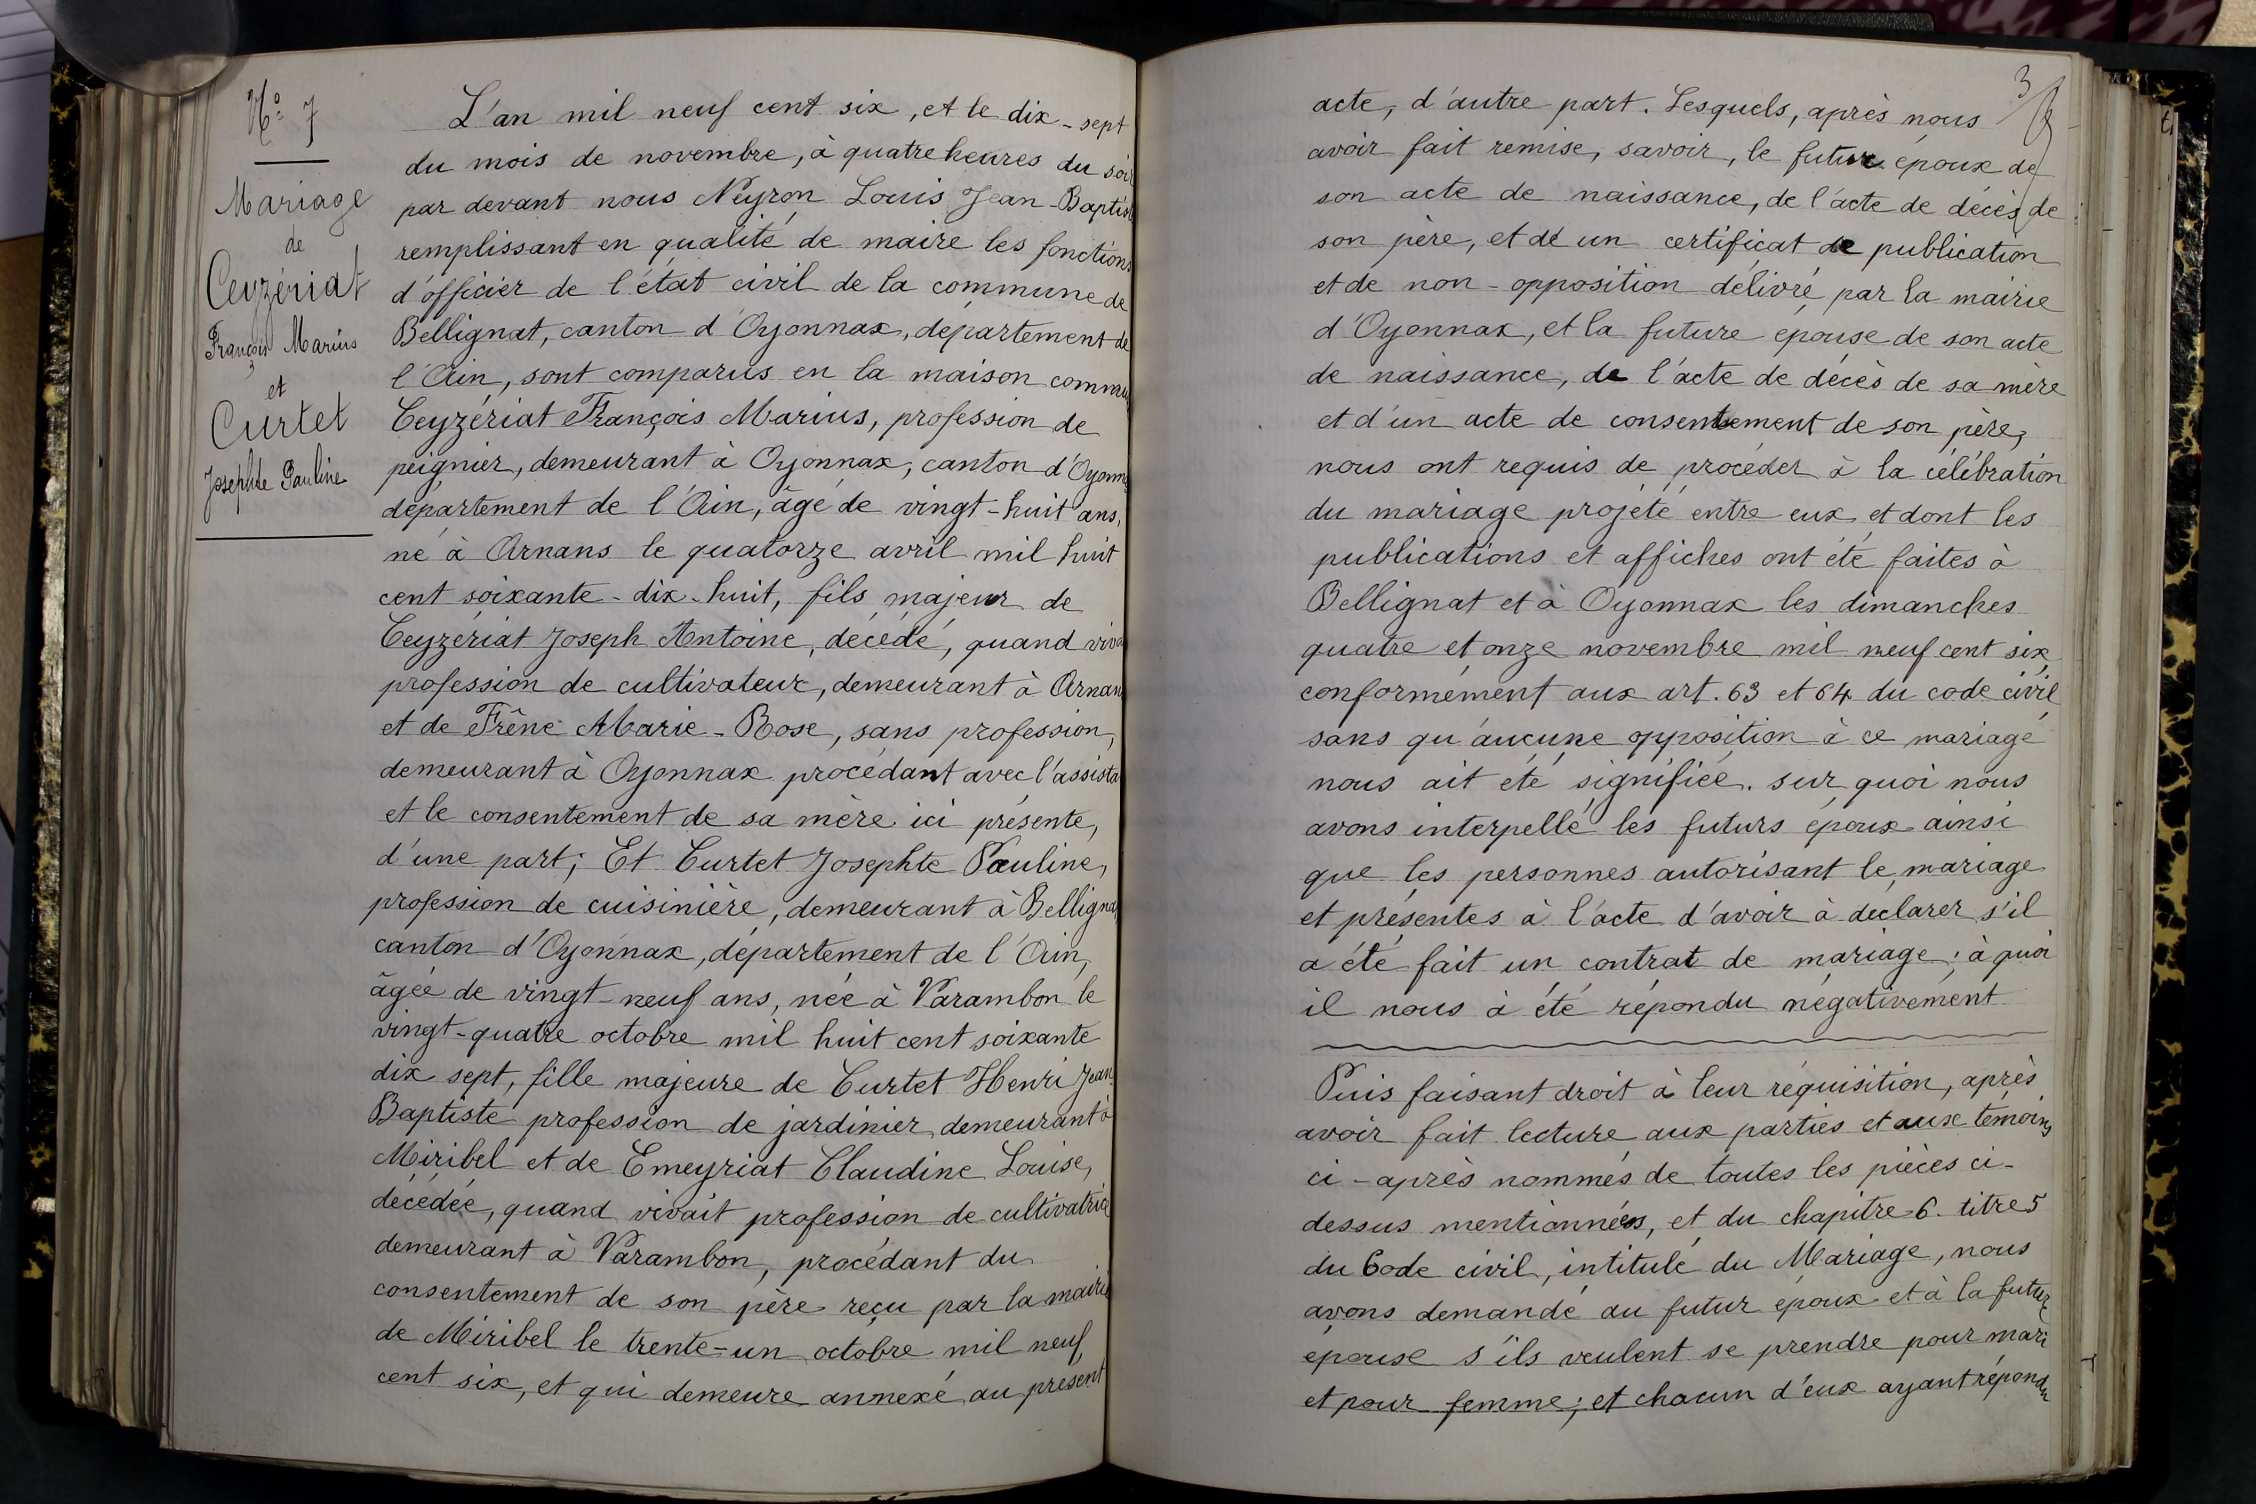 N° 7
Mariage
de
Ceyzériat
François Marius
et
Curtet
Josephte Pauline
L'an mil neuf cent six, et le dix-sept
du mois de novembre, à quatre heures du soir
par devant nous Neyron Louis Jean-Baptiste
remplissant en qualité de maire les fonctions
d'officier de l'état civil de la commune de
Bellignat, canton d'Oyonnax, département de
l'Ain, sont comparus en la maison commu
Ceyzériat François Marius, profession de
peignier, demeurant à Oyonnax, canton d'Oyonna
département de l'Ain, âgé de vingt-huit ans,
né à Arnans le quatorze avril mil huit
cent soixante-dix-huit, fils majeur de
Ceyzériat Joseph Antoine, décédé, quand viva
profession de cultivateur, demeurant à Arnan
et de Frêne Marie-Rose, sans profession,
demeurant à Oyonnax procédant avec l'assista
et le consentement de sa mère ici présente,
d'une part; Et Curtet Josephte Pauline,
profession de cuisinière, demeurant à Belligna
canton d'Oyonnax, département de l'Ain,
âgée de vingt-neuf ans, née à Varambon le
vingt-quatre octobre mil huit cent soixante
dix sept, fille majeure de Curtet Henri Jean-
Baptiste profession de jardinier, demeurant à
Miribel et de Emeyriat Claudine Louise,
décédée, quand vivait profession de cultivatrice
demeurant à Varambon, procédant du
consentement de son père reçu par la mairie
de Miribel le trente-un octobre mil neuf
cent six, et qui demeure annexé au présent
3
acte, d'autre part. Lesquels, après nous
avoir fait remise, savoir, le futur époux de
son acte de naissance, de l'acte de décès de
son père, et de un certificat de publication
et de non-opposition délivré par la mairie
d'Oyonnax, et la future épouse de son acte
de naissance, de l'acte de décès de sa mère
et d'un acte de consentement de son père,
nous ont requis de procéder à la célébration
du mariage projeté entre eux et dont les
publications et affiches ont été faites à
Bellignat et à Oyonnax les dimanches
quatre et onze novembre mil neuf cent six
conformément aux art. 63 et 64 du code civil
sans qu'aucune opposition à ce mariage
nous ait été signifiée. sur quoi nous
avons interpellé les futurs époux ainsi
que les personnes autorisant le mariage
et présentes à l'acte d'avoir à declarer s'il
a été fait un contrat de mariage; à quoi
il nous à été répondu négativement
Puis faisant droit à leur réquisition, après
avoir fait lecture aux parties et aux témoins
ci-après nommés de toutes les pièces ci-
dessus mentionnées, et du chapitre 6. titre 5
du Code civil, intitulé du Mariage, nous
avons demandé au futur époux et à la future
épouse s'ils veulent se prendre pour mari
et pour femme; et chacun d'eux ayant répondu